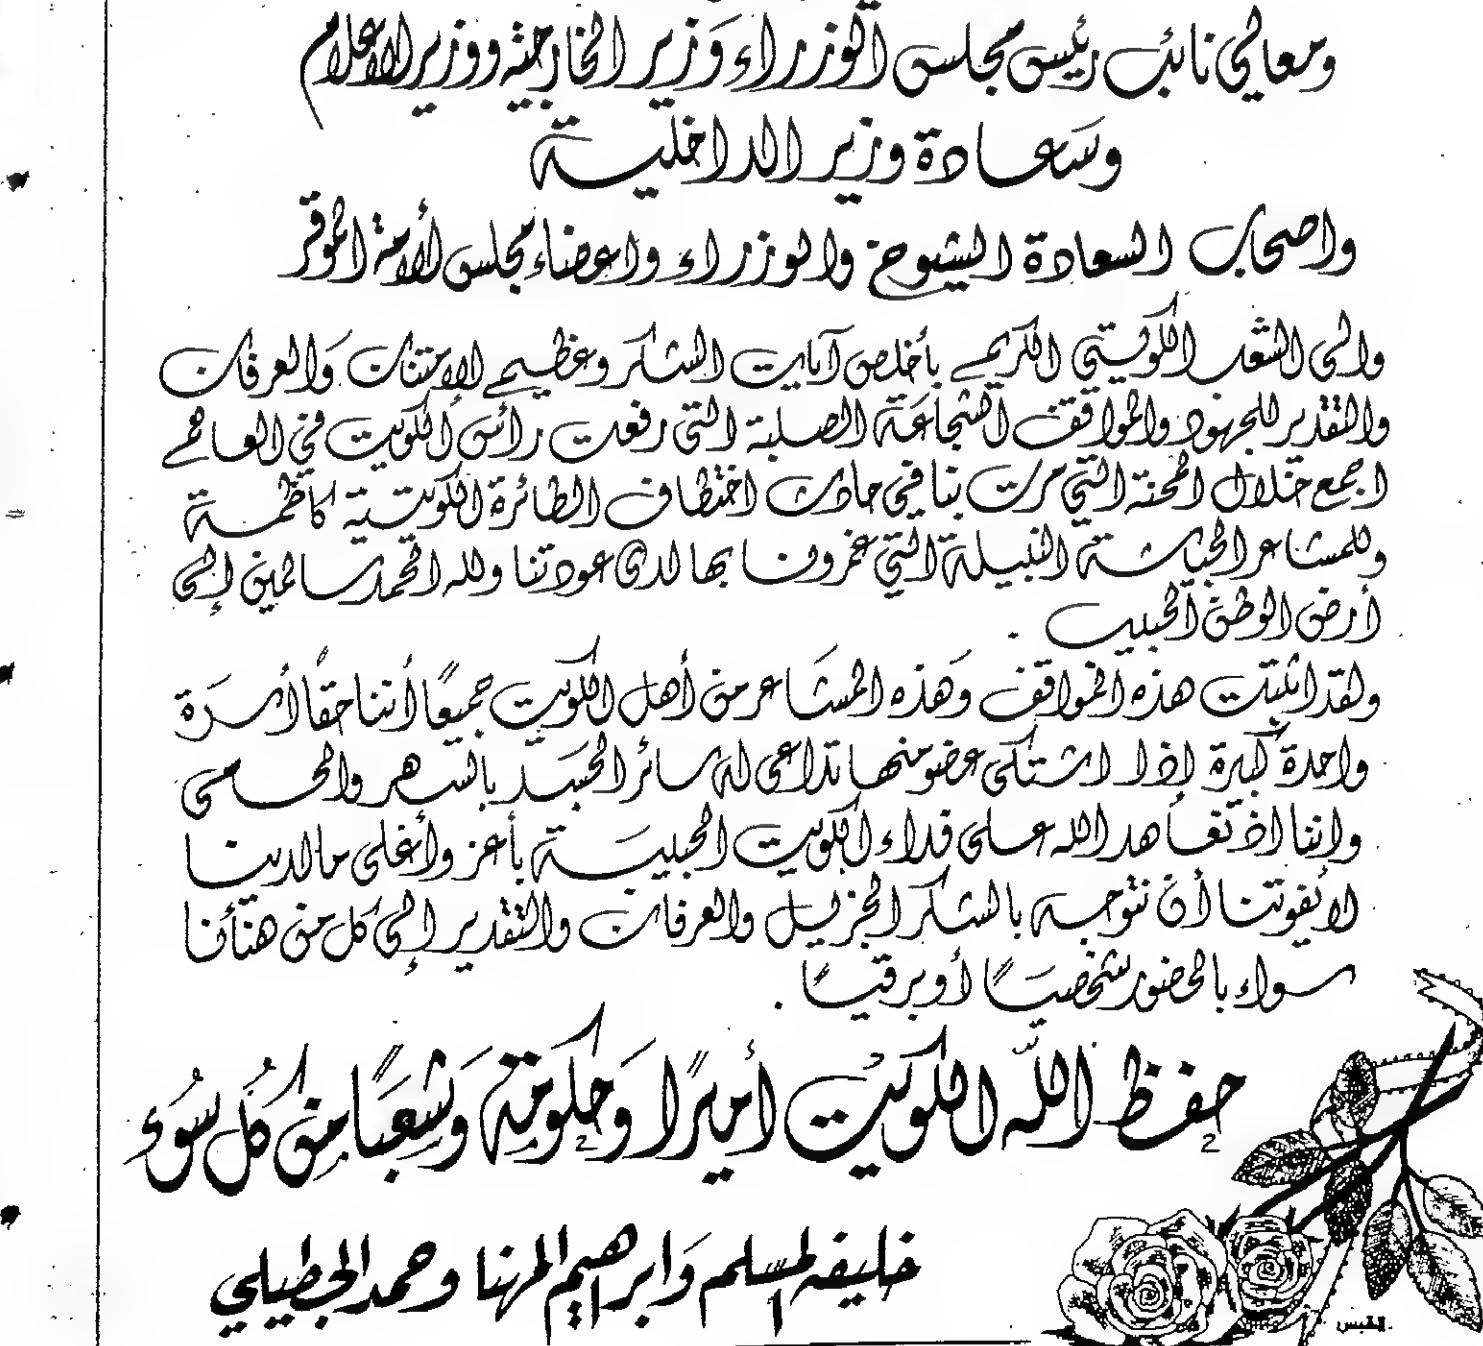 ومعالي نائب رئيس مجلس الوزراء وزير الخارجية ووزير الاعلام
وسعادة وزير الداخلية
واصحاب السعادة الشيوخ والوزراء واعضاء مجلس الأمة الموقر
والى الشعب الكويتي الكريم بأخلص آيات الشكر وعظيم الامتنان والعرفان
والتقدير للجهود والمواقف الشجاعة الصلبة التي رفعت رأس الكويت في العالم
اجمع خلال المحنة التي مرت بنا في حادث اختطاف الطائرة الكويتية كاظمة
وللمشاعر الجياشة النبيلة التي غمرونا بها لدى عودتنا ولله الحمد سالمين إلى
أرض الوطن الحبيب .
ولقد اثبتت هذه المواقف وهذه المشاعر من أهل الكويت جميعًا أننا حقًا أسرة
واحدة كبيرة إذا اشتكى عضو منها تداعى له سائر الجسد بالسهر والحمى
واننا اذ نعاهد الله على فداء الكويت الحبيبة بأعز وأغلى ما لدينا
لا يفوتنا أن نتوجه بالشكر الجزيل والعرفان والتقدير إلى كل من هنأنا
سواء بالحضور شخصيًا أو برقيًا .
حفظ الله الكويت أميرًا وحكومة وشعبًا من كل سوء
خليفه المسلم وابراهيم المهنا وحمد الجطيلي
القبس